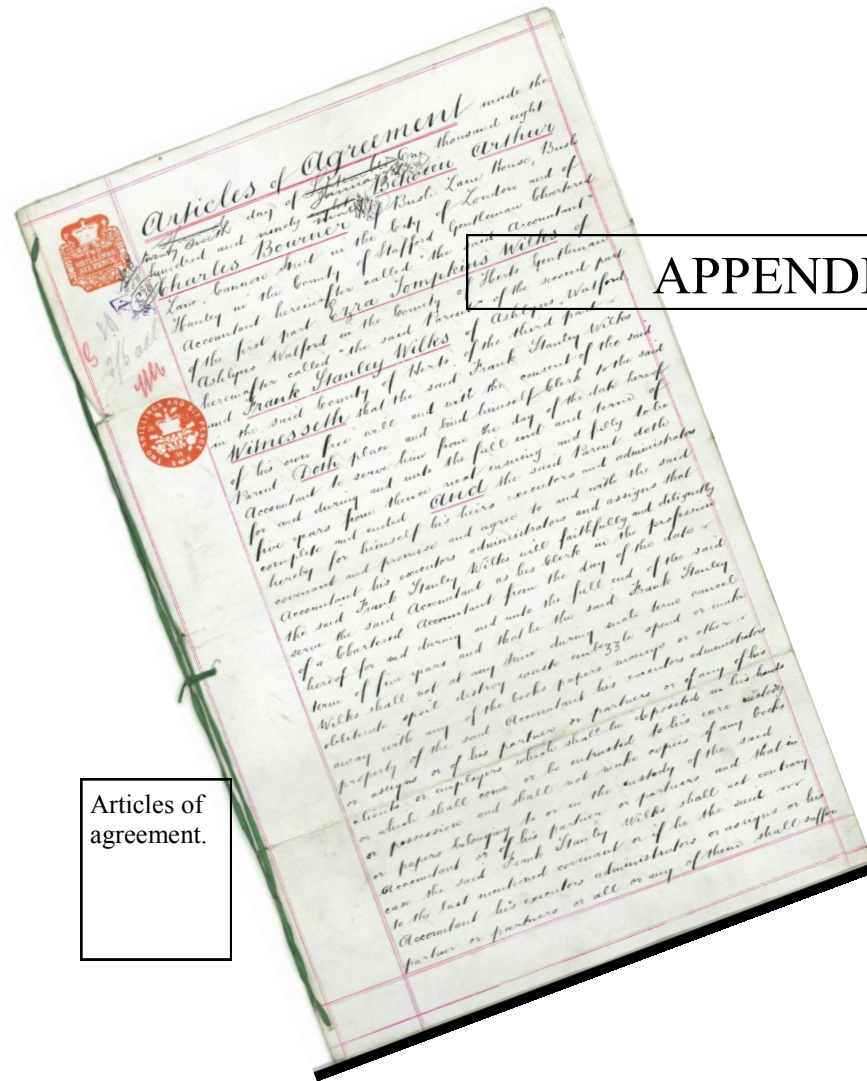 Articles of Agreement made the
day of thousand eight
hundred and ninety Between Arthur
Charles Bourner of Bush Lane House, Bush
Lane, Cannon Street in the City of London and of
Hanley in the County of Stafford Gentleman Chartered
Accountant hereinafter called "the said Accountant"
of the first part Ezra Tompkins Wilks of
Ashlyns Watford in the County of Herts Gentleman
hereinafter called "the said Parent" of the second part
and Frank Stanley Wilks of Ashlyns Watford
in the said County of Herts of the third part
Witnesseth that the said Frank Stanley Wilks
of his own free will and with the consent of the said
Parent Doth place and bind himself Clerk to the said
Accountant to serve him from the day of the date hereof
for and during and unto the full end and term of
five years from thence next ensuing and fully to be
complete and ended And the said Parent doth
hereby for himself his heirs executors and administrators
covenant and promise and agree to and with the said
Accountant his executors administrators and assigns that
the said Frank Stanley Wilks will faithfully and diligently
serve the said Accountant as his Clerk in the profession
of a Chartered Accountant from the day of the date
hereof for and during and unto the full end of the said
term of five years and that he the said Frank Stanley
Wilks shall not at any time during such term cancel
obliterate spoil destroy waste embezzle spend or make
away with any of the books papers moneys or other
property of the said Accountant his executors administrators
or assigns or of his partner or partners or of any of his
clients or employers which shall be deposited in his hands
or which shall come or be entrusted to his care custody
or possession and shall not make copies of any books
or papers belonging to or in the custody of the said
Accountant or of his partner or partners and that in
case the said Frank Stanley Wilks shall act contrary
to the last mentioned covenant or if he the said
Accountant his executors administrators or assigns or his
partner or partners or all or any of them shall suffer
TWO SHILLINGS AND SIX PENCE
APPENDI
Articles of
agreement.